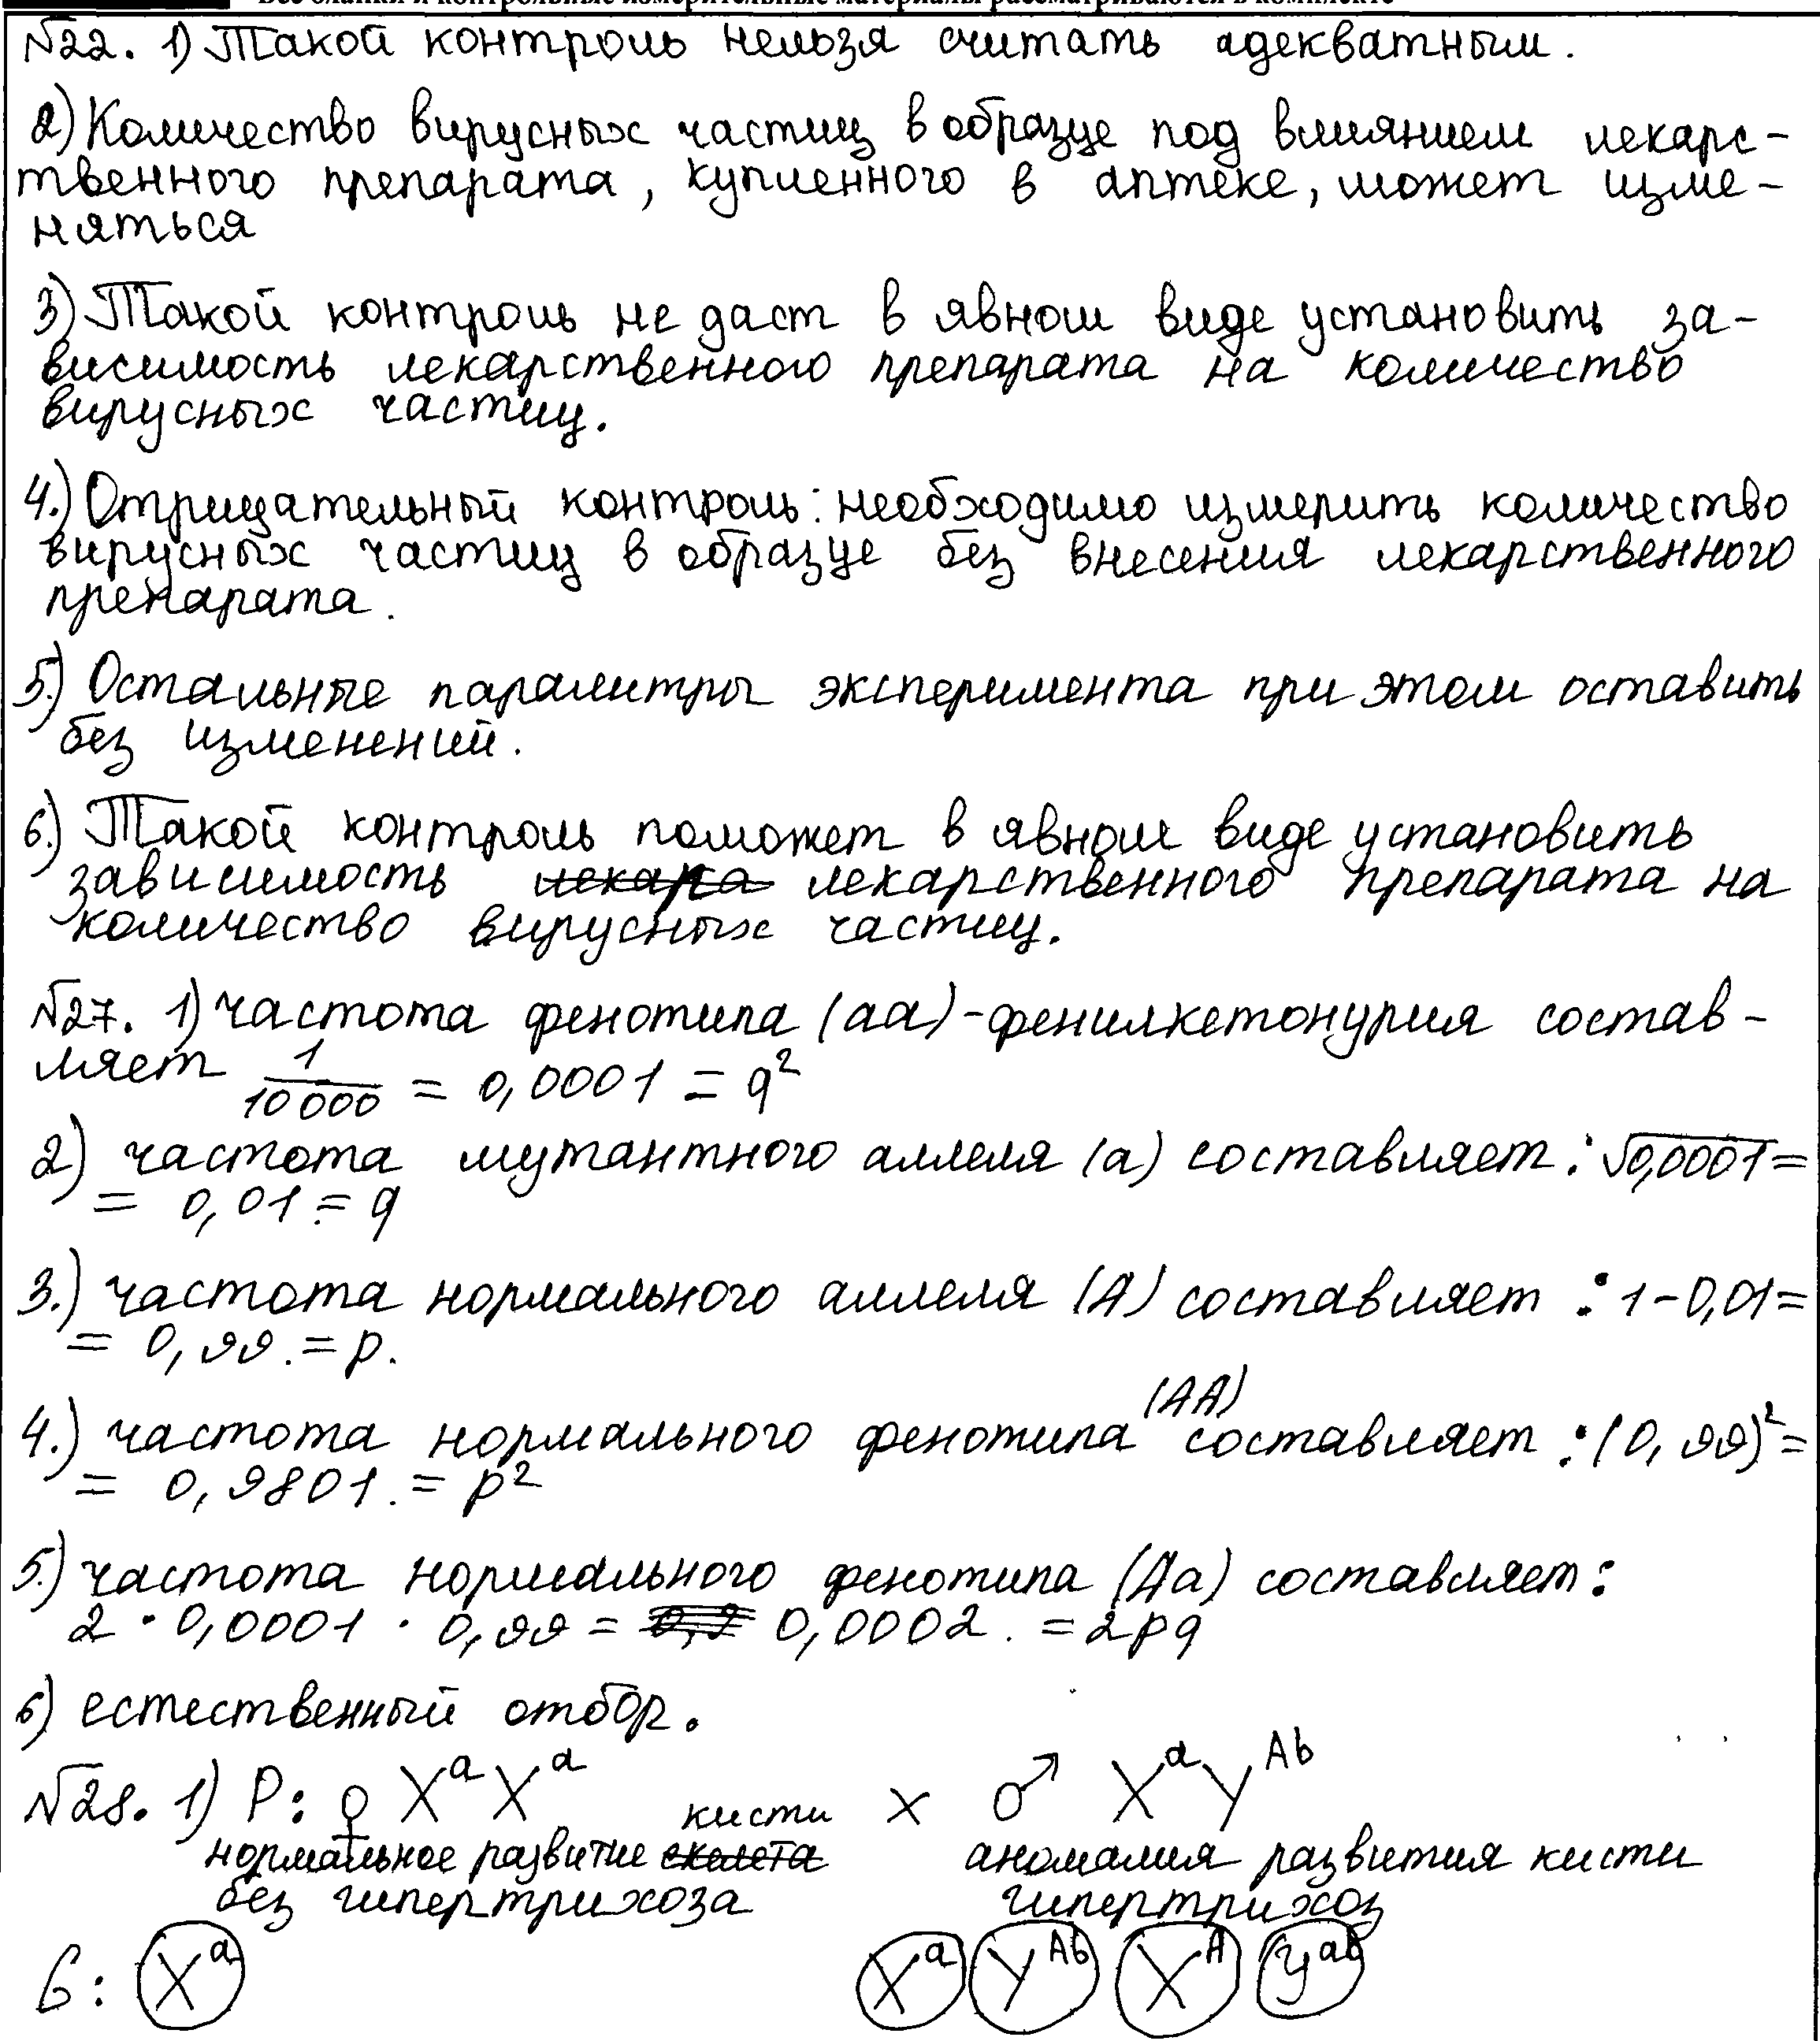 Все бланки и контрольные измерительные материалы рассматриваются в комплекте
№22. 1) Такой контроль нельзя считать адекватным.
2) Количество вирусных частиц в образце под влиянием лекарс-
твенного препарата, купленного в аптеке, может изме-
няться
3) Такой контроль не даст в явном виде установить за-
висимость лекарственного препарата на количество
вирусных частиц.
4.) Отрицательный контроль: необходимо измерить количество
вирусных частиц в образце без внесения лекарственного
препарата.
5.) Остальные параметры эксперимента при этом оставить
без изменений.
6.) Такой контроль поможет в явном виде установить
зависимость лекара лекарственного препарата на
количество вирусных частиц.
№27. 1) частота фенотипа (аа)-фенилкетонурия состав-
ляет 1/10000 = 0,0001 = q²
2) частота мутантного аллеля (а) составляет: √0,0001 =
= 0,01 = q
3.) частота нормального аллеля (А) составляет : 1-0,01=
= 0,99. = p.
4.) частота нормального фенотипа (АА) составляет : (0,99)² =
= 0,9801. = p²
5.) частота нормального фенотипа (Аа) составляет:
2 · 0,0001 · 0,99 = 0,9 0,0002. = 2pq
6) естественный отбор.
№28. 1) P: ♀ XᵃXᵃ x ♂ XᵃYᴬᵇ
нормальное развитие скелета кисти аномалия развития кисти
без гипертрихоза гипертрихоз
G: Xᵃ Xᵃ Yᴬᵇ Xᴬ Yᵃᵇ